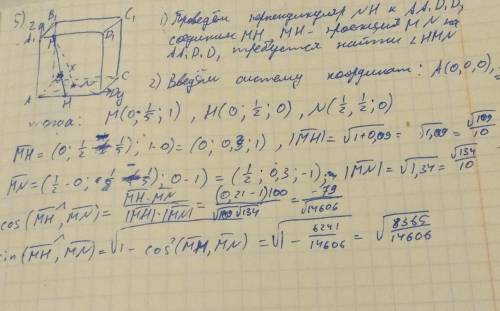 5)
z B₁ C₁
A₁ M D₁
K
N
A H D y C
1) Проведём перпендикуляр NH к AA₁D₁D,
соединим MH, MH - проекция MN на
AA₁D₁D, требуется найти ∠HMN
2) Введём систему координат: A(0,0,0),
тогда: M(0; 1/5; 1), H(0; 1/2; 0), N(1/2, 1/2; 0)
MH = (0; 1/2 - 1/5); 1-0) = (0; 0,3; 1), |MH| = √(1+0,09) = √1,09 = √109/10
MN = (1/2 - 0; 1/2 - 1/5); 0-1) = (1/2; 0,3; -1); |MN| = √1,34 = √134/10
cos(MH, MN) = MH·MN/|MH|·|MN| = (0,21-1)100/√109 √134 = -79/√14606
sin(MH, MN) = √(1 - cos²(MH, MN) = √(1 - 6241/14606) = √(8365/14606)